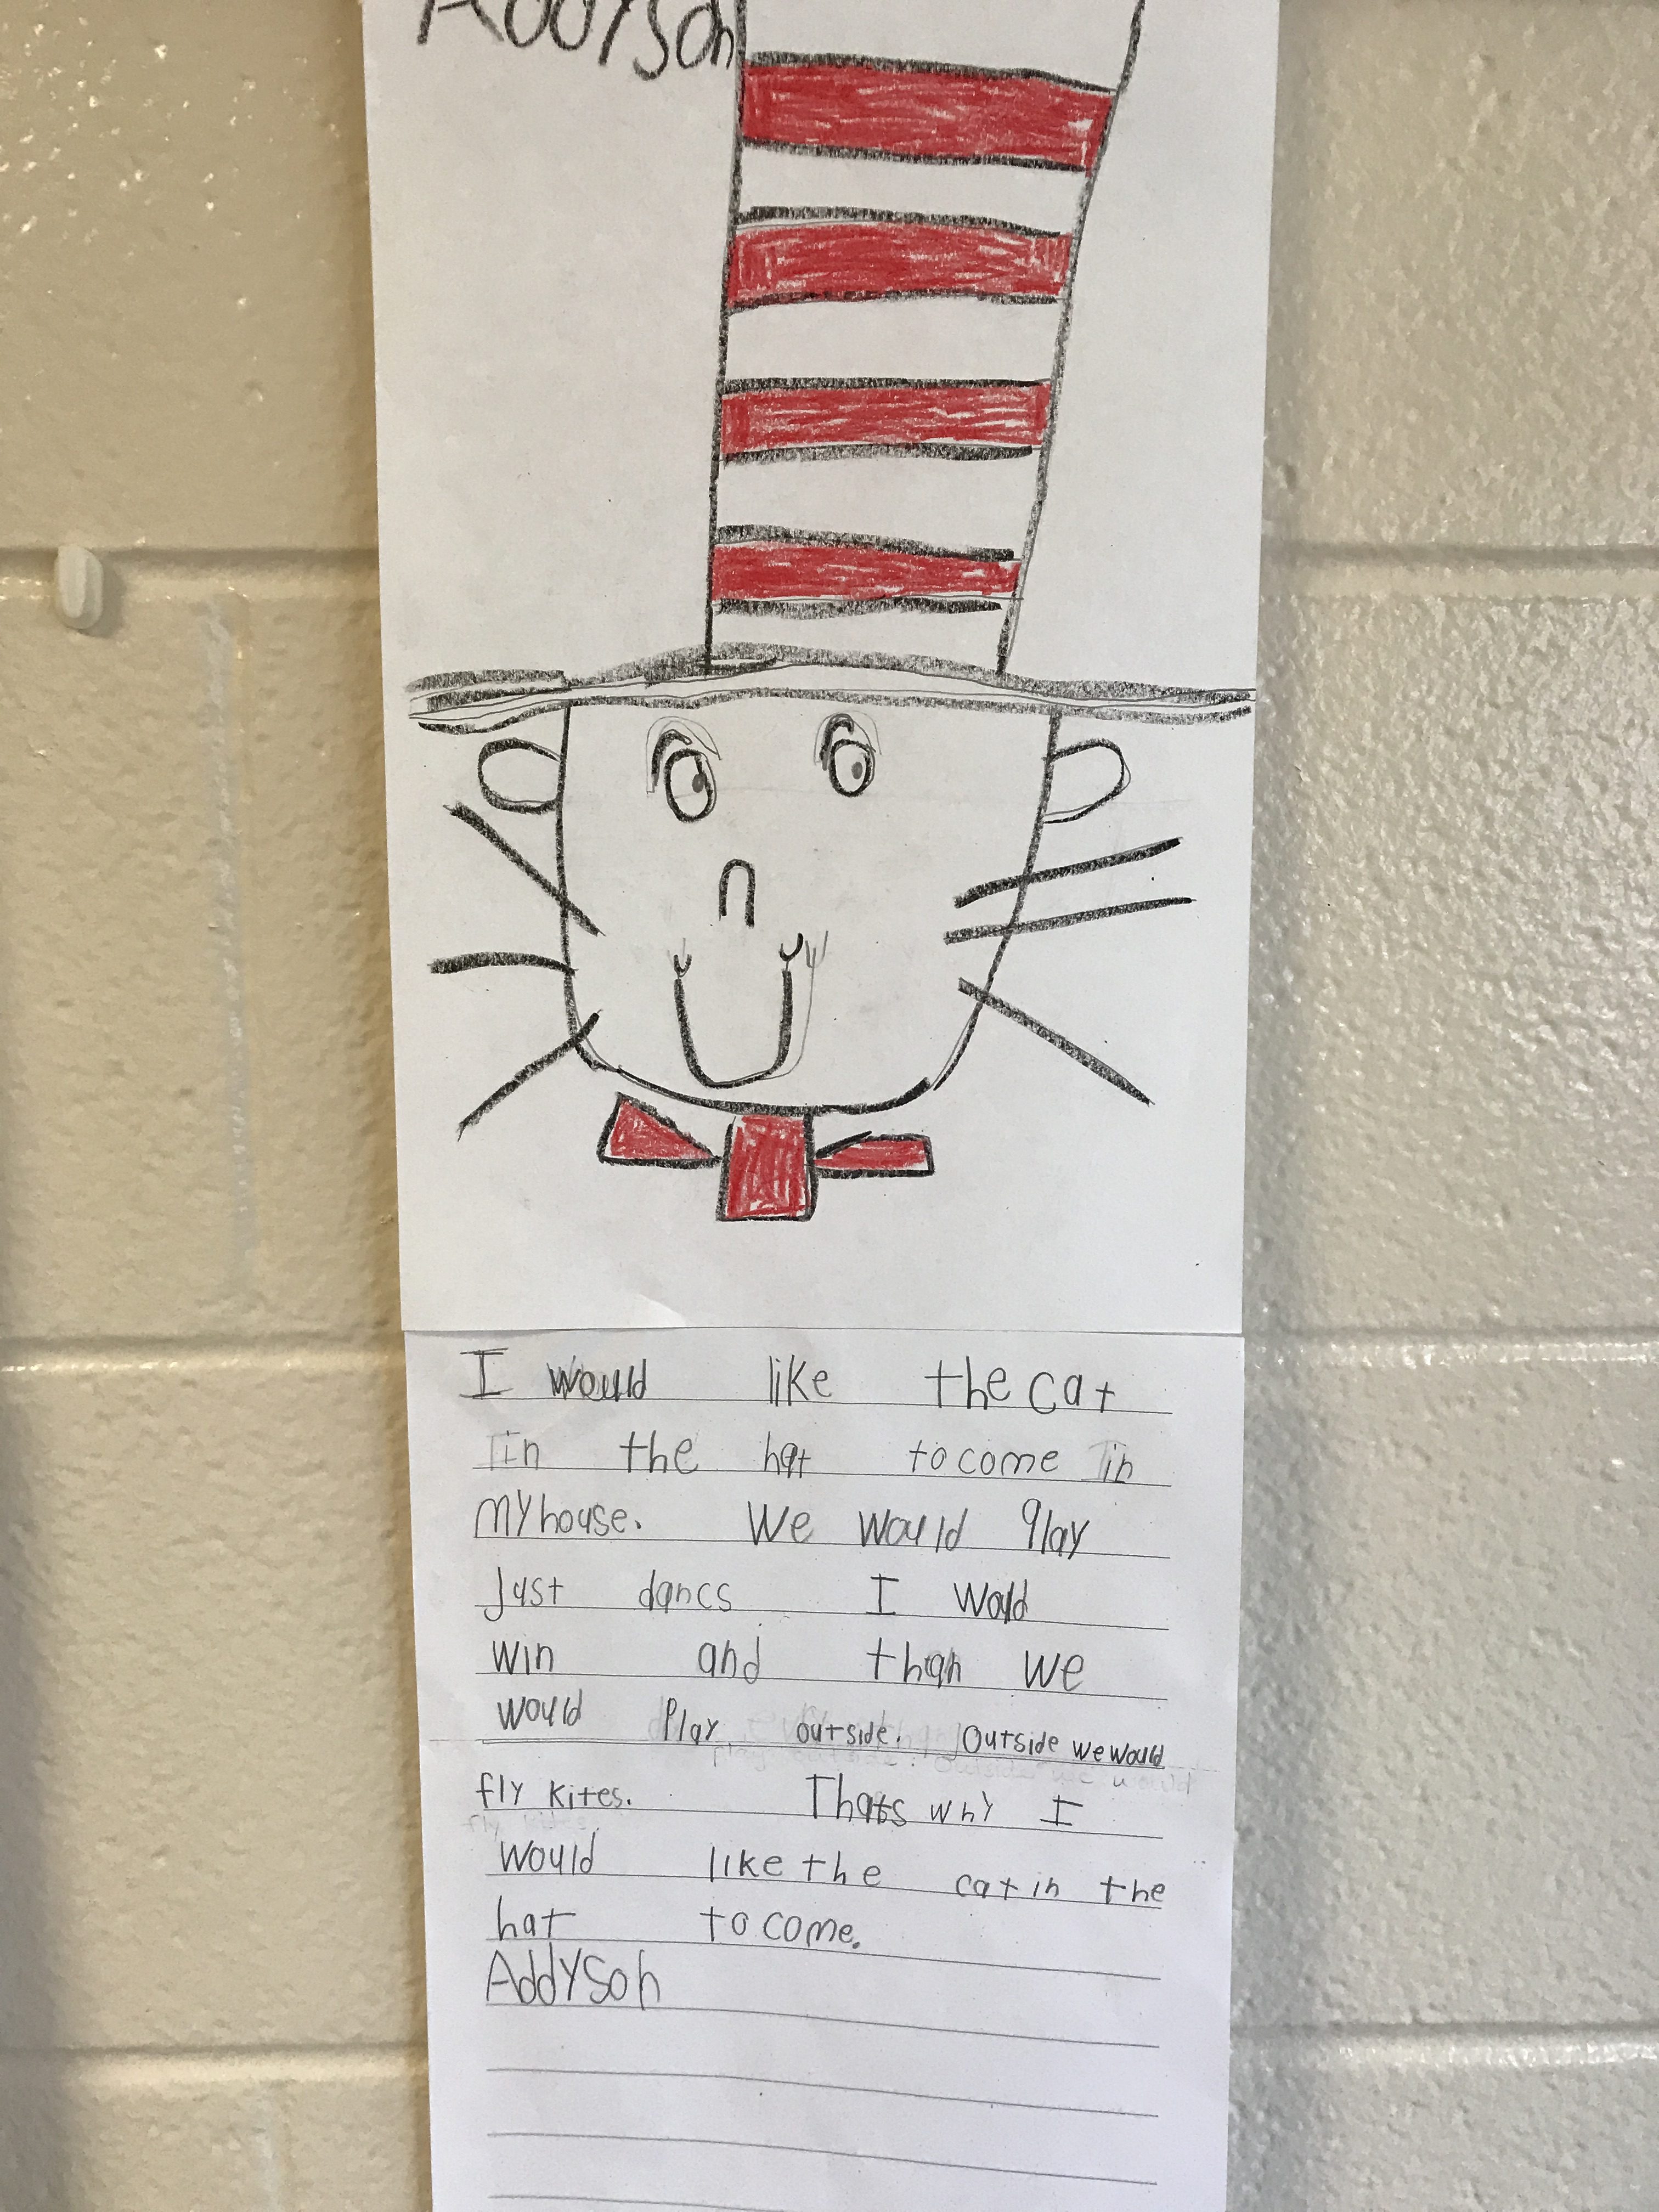 Addyson
I would like the cat
in the hat to come in
My house. We would Play
Just dancs I would
win and than we
would Play outside. Outside we would
fly kites. Thats why I
would like the cat in the
hat to come.
Addyson